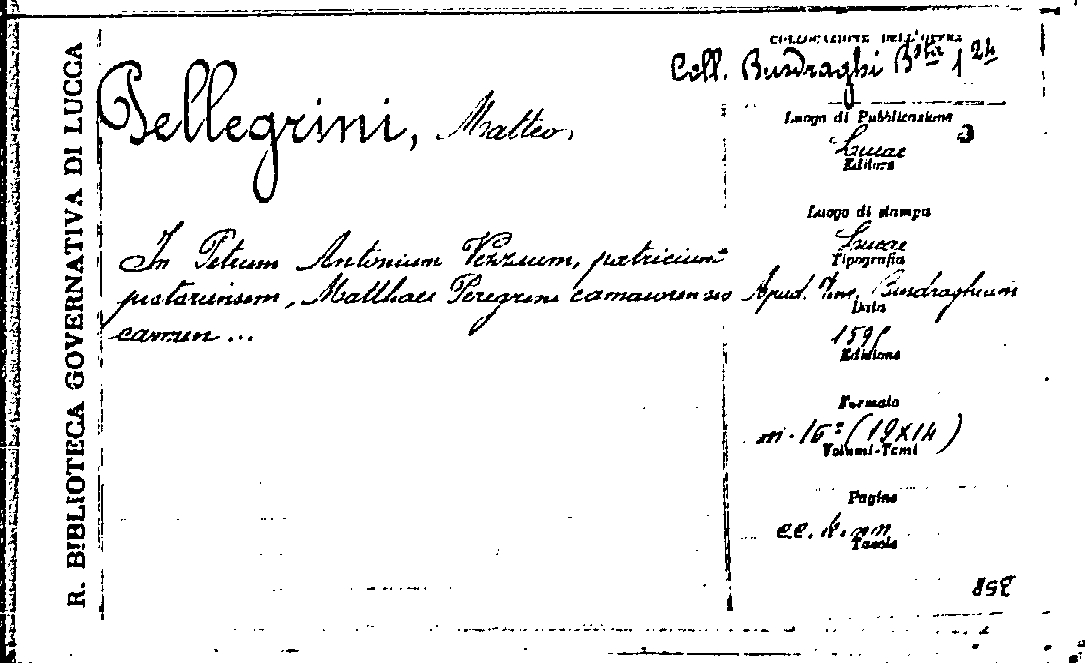 R. BIBLIOTECA GOVERNATIVA DI LUCCA
COLLOCAZIONE DELL'OPERA
Coll. Busdraghi Bsta 1 24
Pellegrini, Matteo.
Luogo di Pubblicazione
Lucae
Editore
Luogo di stampa
Lucae
Tipografia
In Petrum Antonium Vezzium, patricium
pistoriensem, Matthaei Peregrini camaiorensis
carmen ...
Apud. Vinc. Busdraghium
Data
159
Edizione
Formato
in-16º (19X14)
Volumi-Tomi
Pagine
cc. 4. nn
Tavole